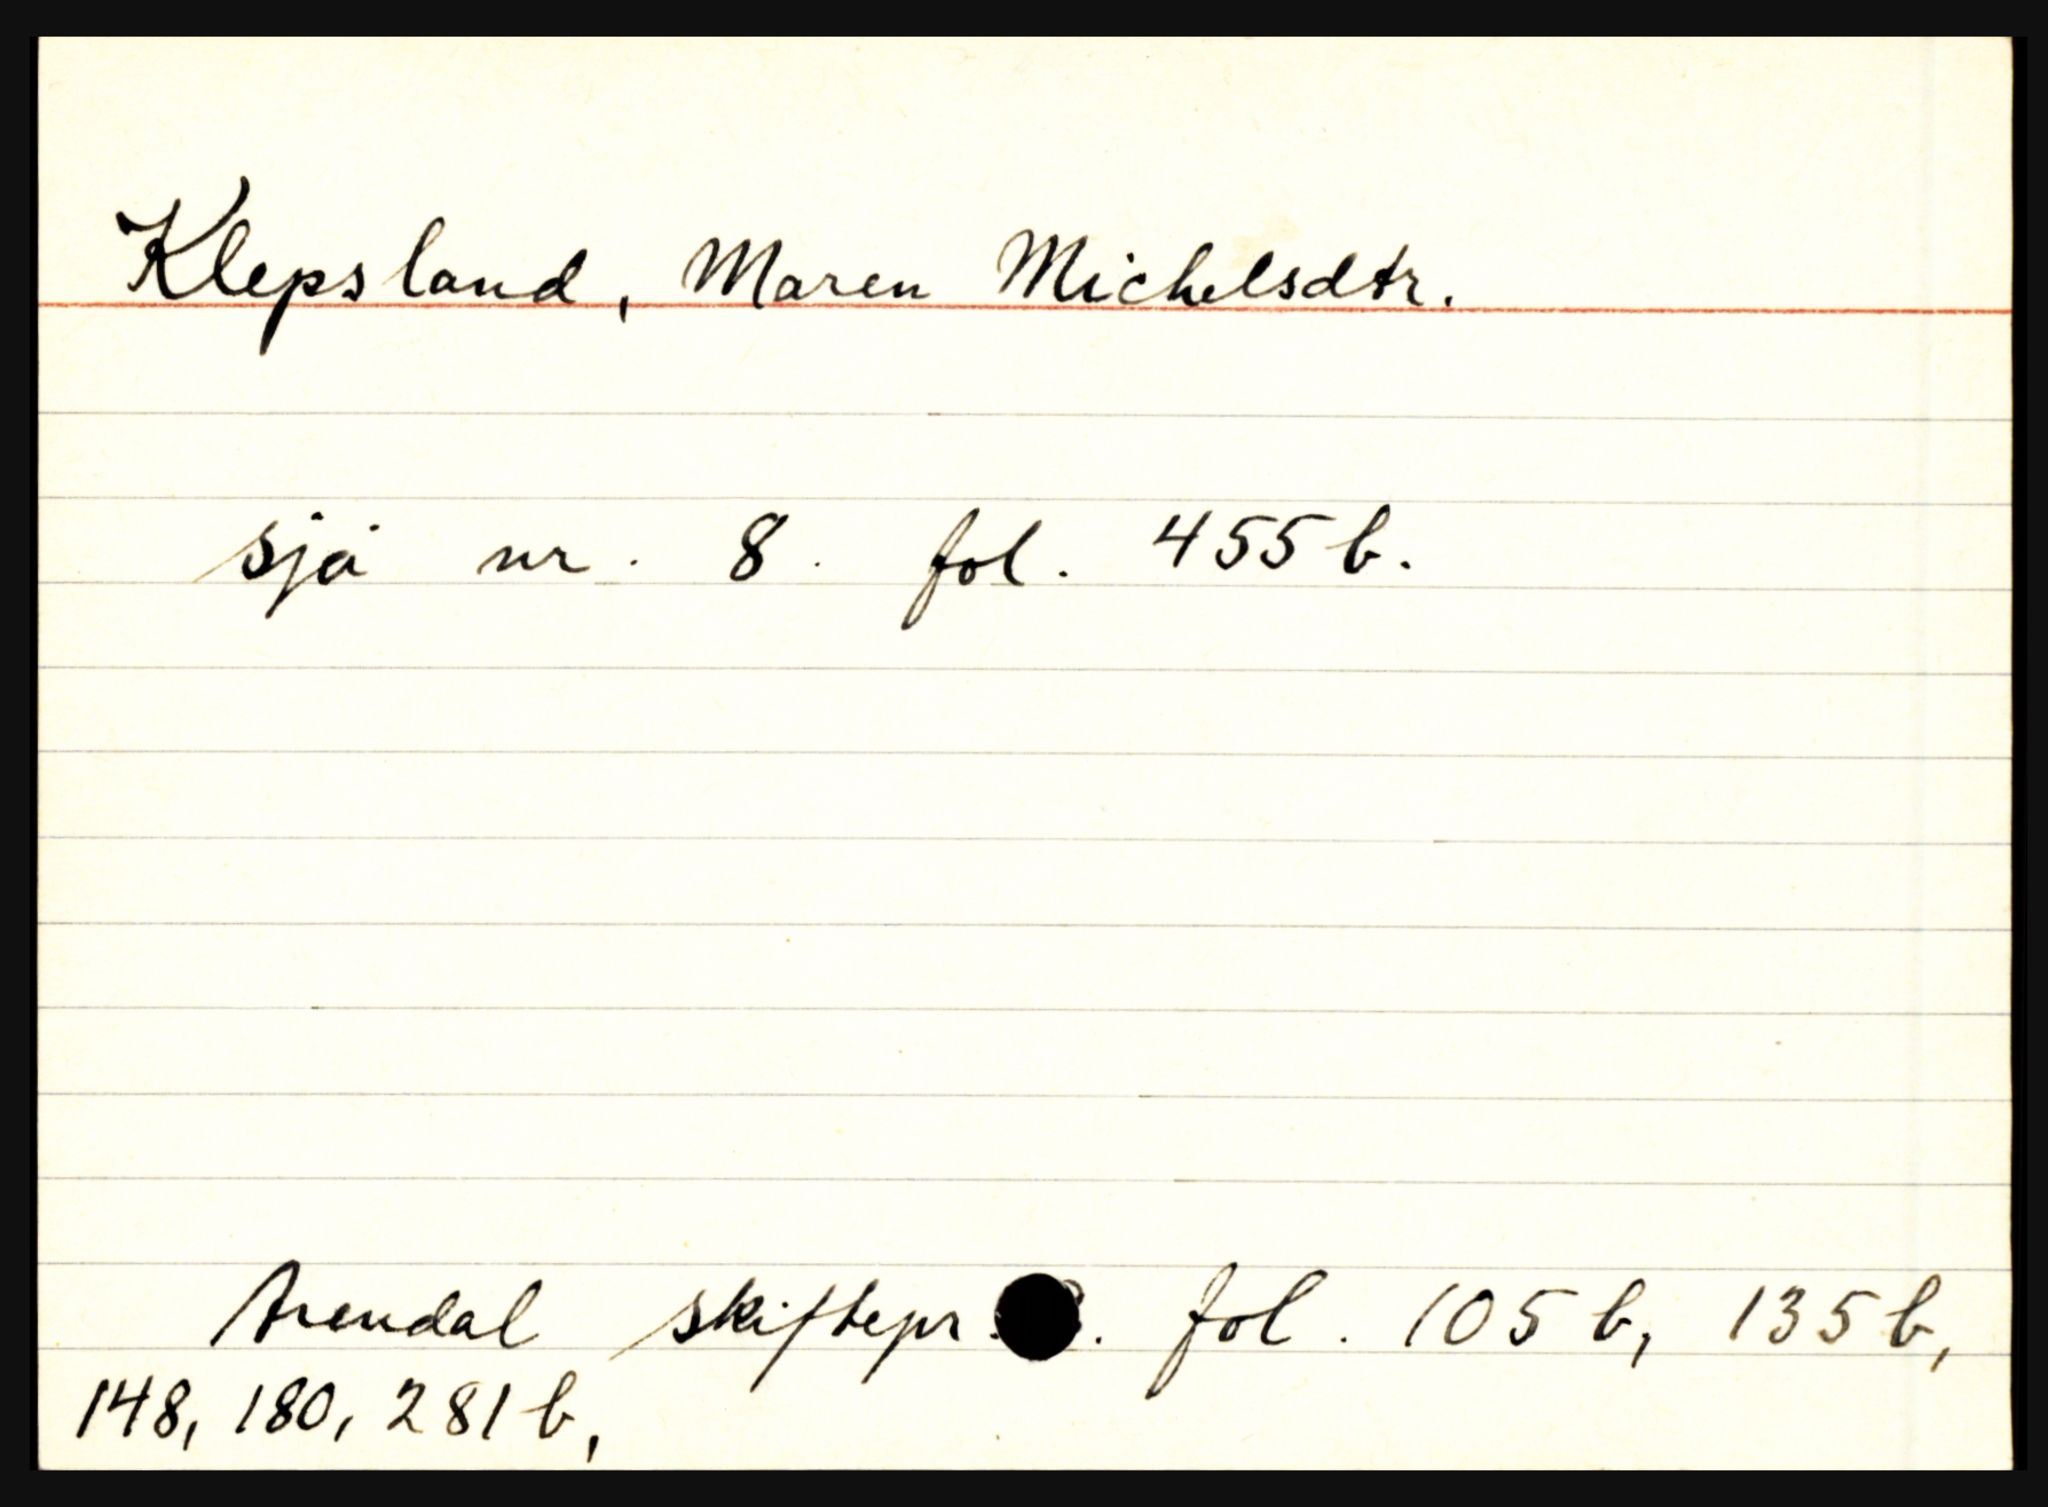 Klepsland, Maren Michelsdtr.
sjå nr. 8. fol. 455 b.
Arendal skiftepr. fol. 105 b, 135 b,
148, 180, 281 b,